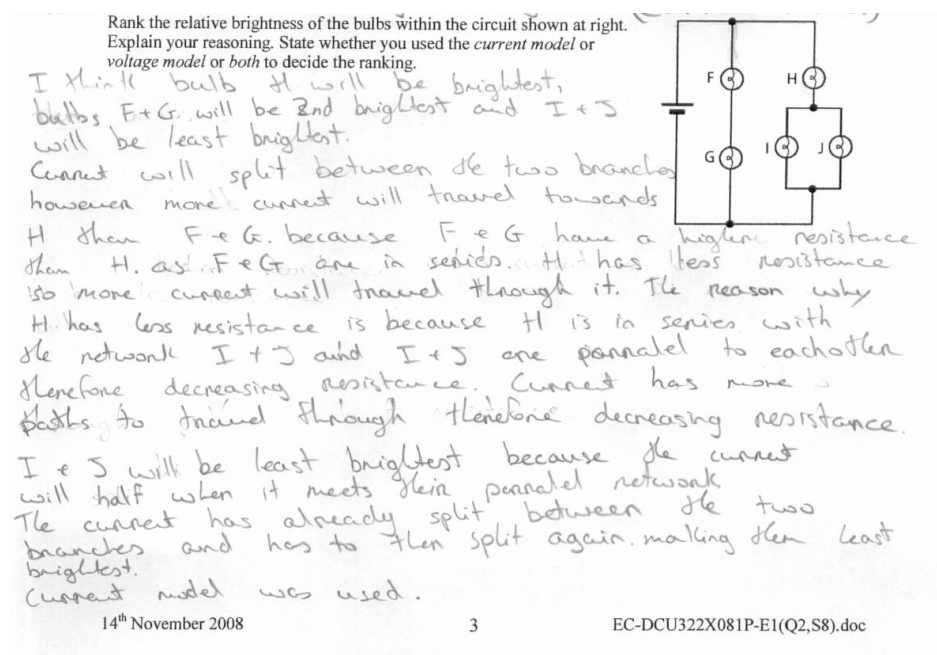 Rank the relative brightness of the bulbs within the circuit shown at right.
Explain your reasoning. State whether you used the current model or
voltage model or both to decide the ranking.
I think bulb H will be brightest,
bulbs F+G will be 2nd brightest and I + J
will be least brightest.
Current will split between the two branches
however more current will travel towards
H than F e G. because F e G have a higher resistance
than H. as F e G are in series. H has less resistance
so more current will travel through it. The reason why
H has less resistance is because H is in series with
the network I + J and I + J are parralel to eachother
therefore decreasing resistance. Current has more
paths to travel through therefore decreasing resistance.
I e J will be least brightest because the current
will half when it meets their parralel network
The current has already split between the two
branches and has to then split again. making them least
brightest.
Current model was used.
F
H
G
I
J
14th November 2008
3
EC-DCU322X081P-E1(Q2,S8).doc